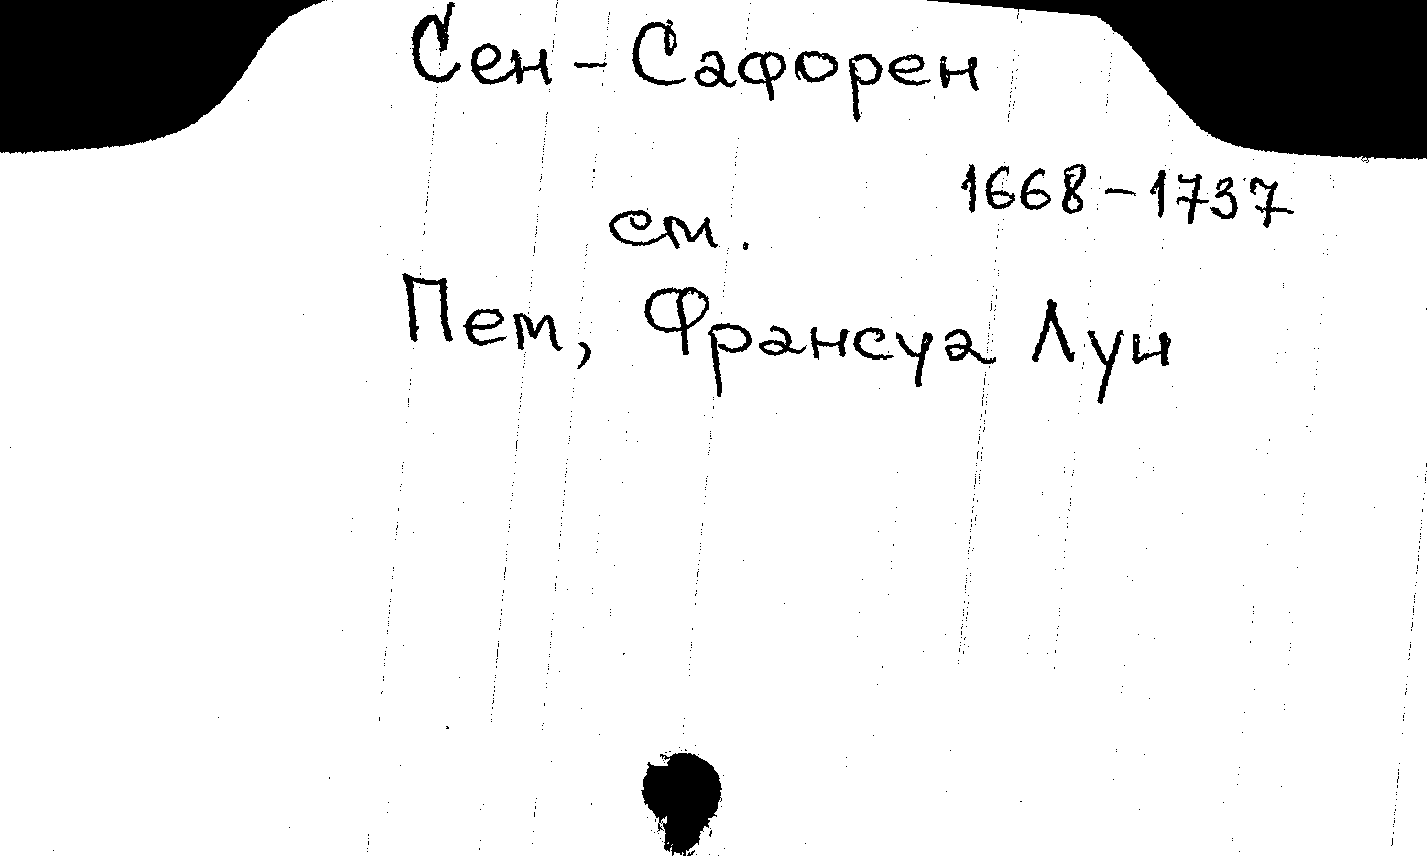 Сен-Сафорен
1668-1737
см.
Пем, Франсуа Луи